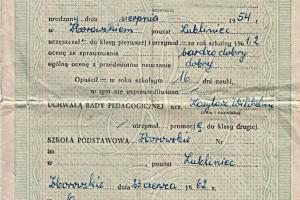 urodzony dnia sierpnia 1954 r.
w Zborowskiem powiat Lubliniec
uczęszczał do klasy pierwszej i otrzymał za rok szkolny 1961/2
ocenę ze sprawowania bardzo dobry
ogólną ocenę z przedmiotów nauczania dobry
Opuścił w roku szkolnym 16 dni nauki,
w tym nie usprawiedliwiono
UCHWAŁĄ RADY PEDAGOGICZNEJ ucz.
otrzymał promocję do klasy drugiej.
SZKOŁA PODSTAWOWA Zborowskie
w powiat Lubliniec
Zborowskie dnia 23 czerwca 1962 r.
6